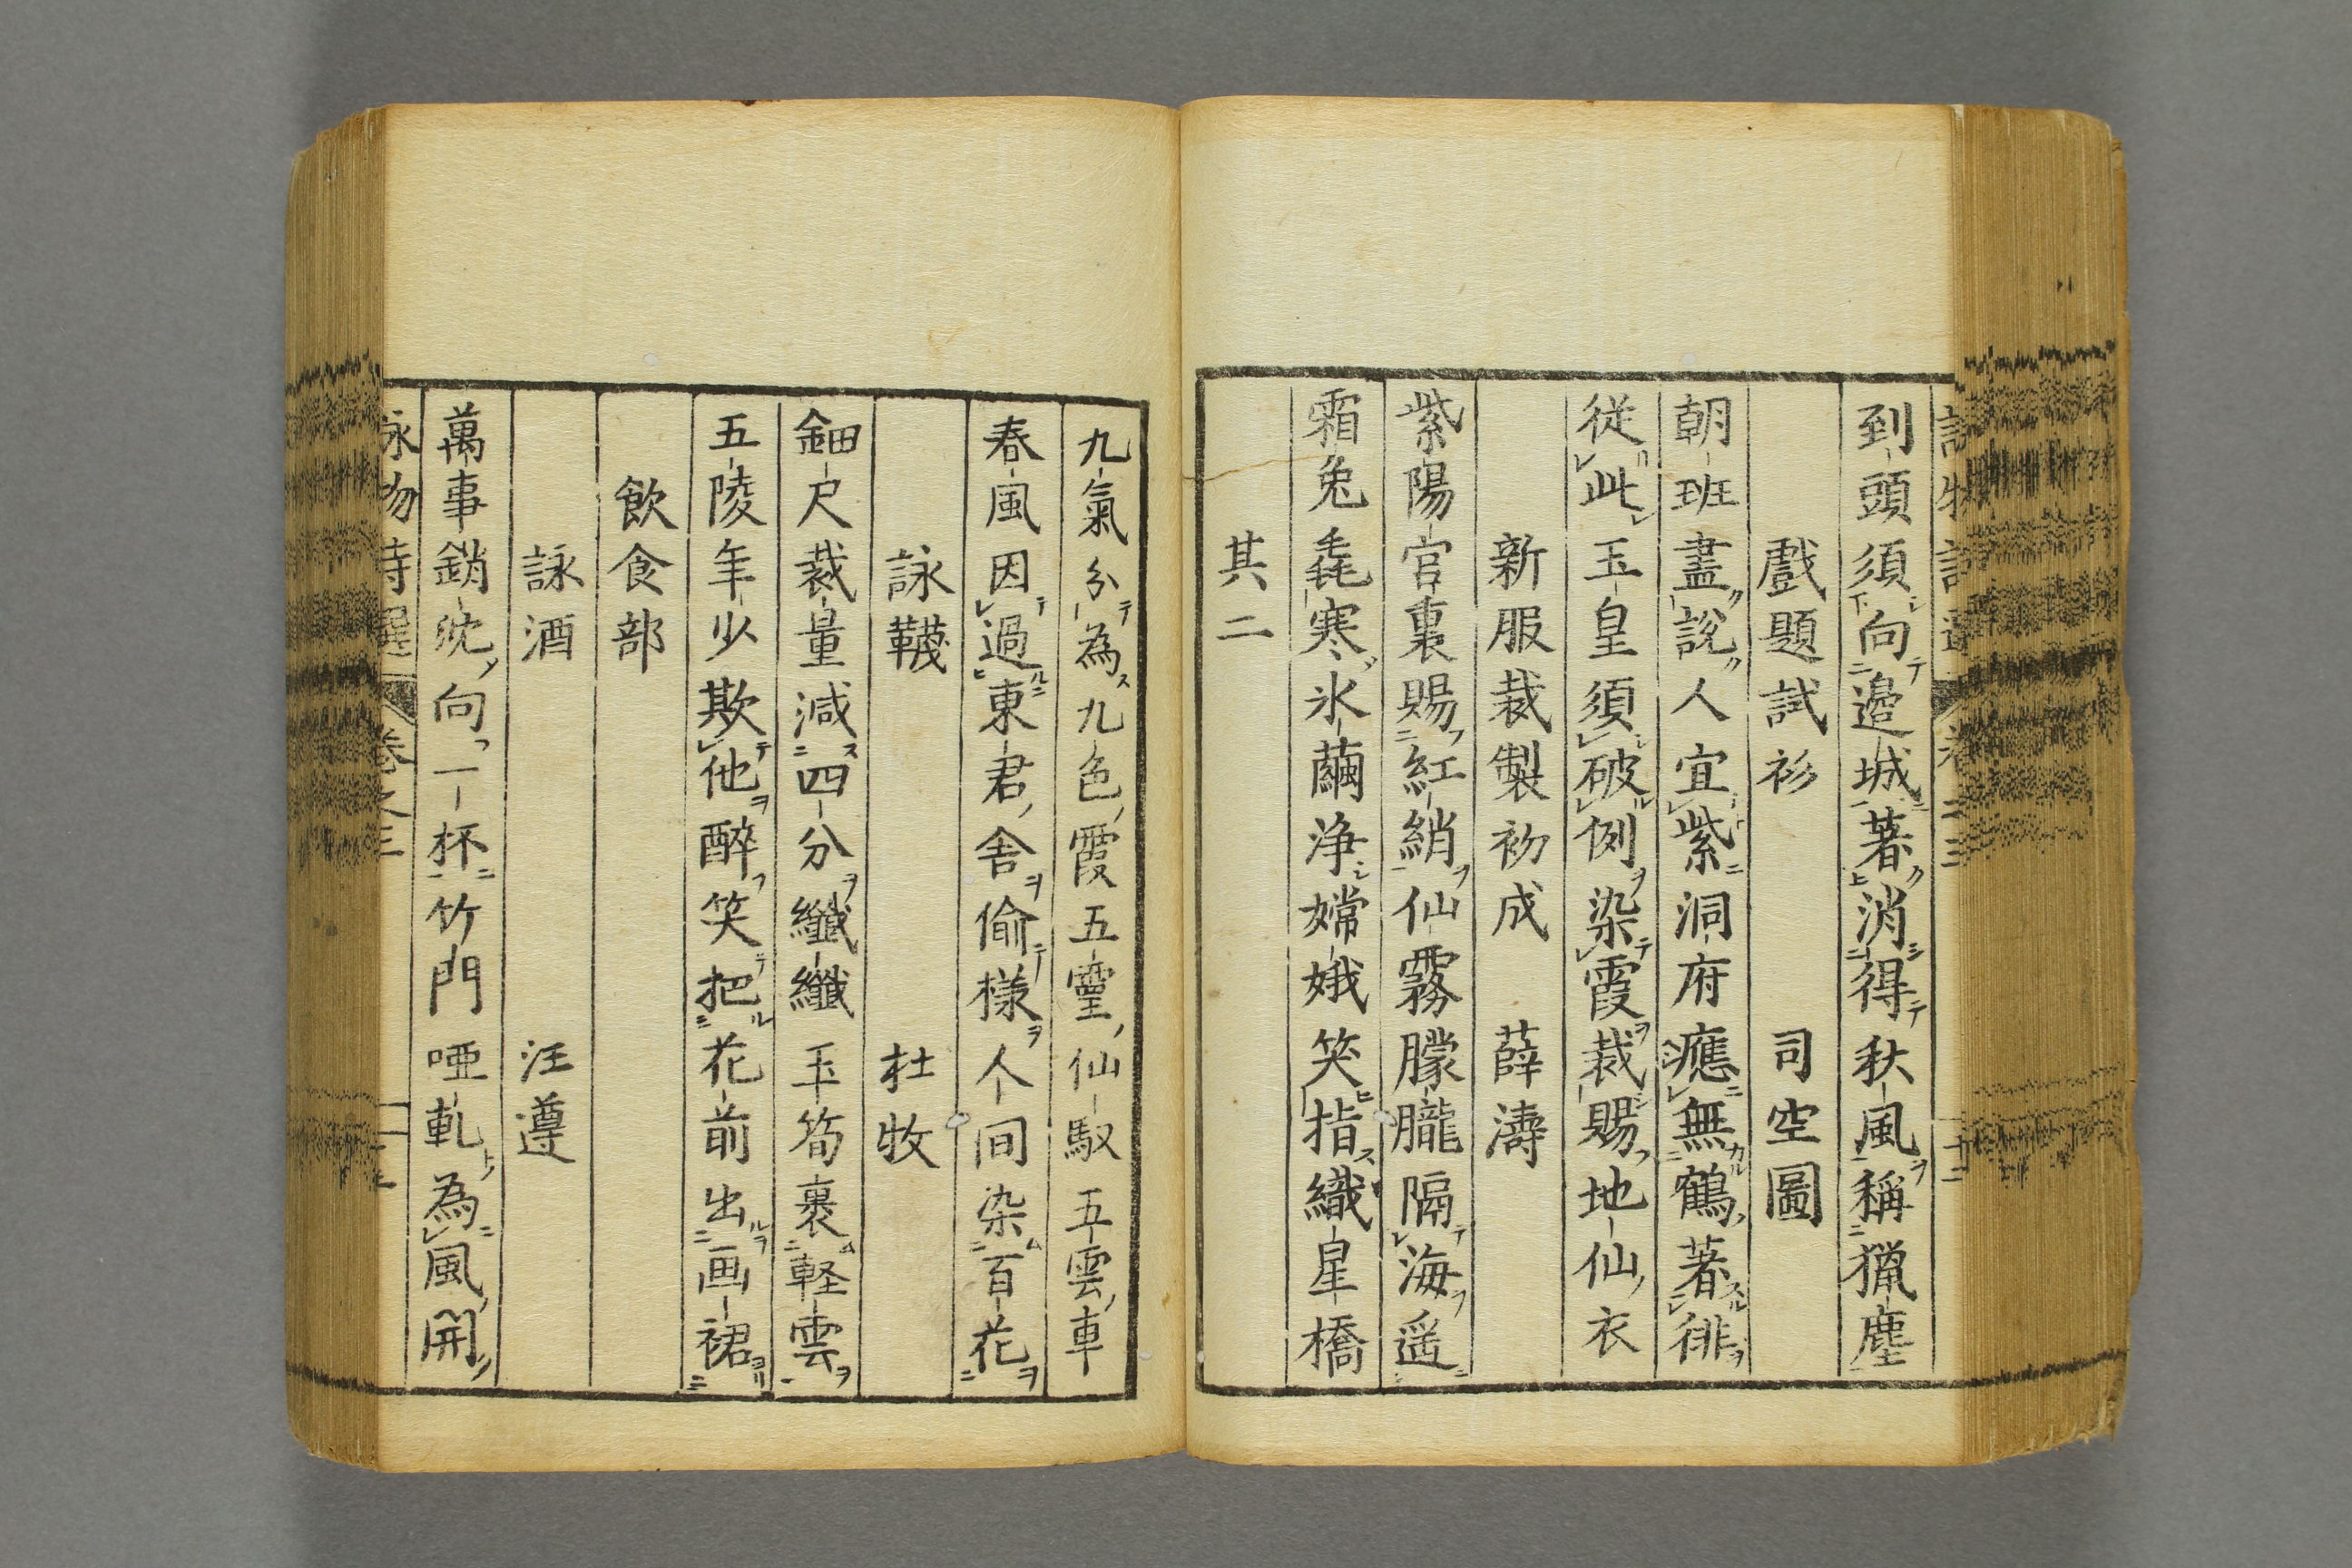 到頭須向邉城著消得秋風稱獵塵
戲題試衫 司空圖
朝班盡說人宜紫洞府應無鶴著緋
從此玉皇須破例染霞裁賜地仙衣
新服裁製初成 薛濤
紫陽宮裏賜紅綃仙霧朦朧隔海遥
霜兔毳寒氷繭浄嫦娥笑指織星橋
其二
九氣分為九色霞五靈仙馭五雲車
春風因過東君舎偷樣人间染百花
詠韈 杜牧
鈿尺裁量減四分纖纖玉筍裹軽雲
五陵年少欺他醉笑把花前出画裙
飲食部
詠酒 汪遵
萬事銷沈向一杯竹門啞軋為風開
詠物詩選 卷之三